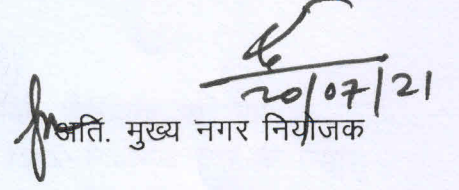 20/07/21
अति. मुख्य नगर नियोजक